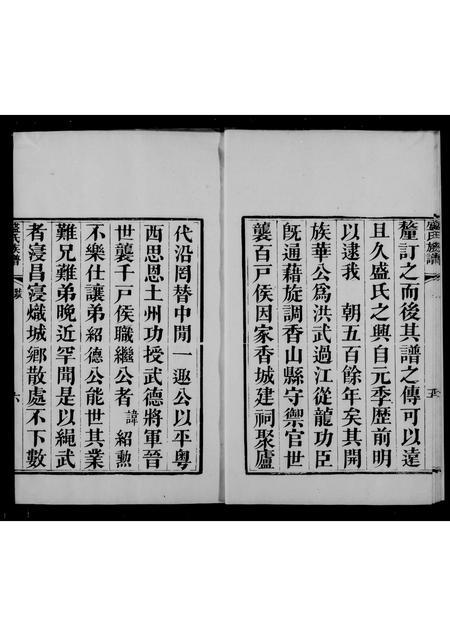 盛氏族譜
釐訂之而後其譜之傳可以遠
且久盛氏之興自元季歷前明
以逮我　朝五百餘年矣其開
族華公為洪武過江從龍功臣
旣通藉旋調香山縣守禦官世
襲百戸侯因家香城建祠聚廬
代沿罔替中閒一遯公以平粵
西思恩土州功授武德將軍晉
世襲千戸侯職繼公者諱紹勲
不樂仕讓弟紹德公能世其業
難兄難弟晚近罕聞是以繩武
者寖昌寖熾城鄉散處不下數
盛氏族譜
六